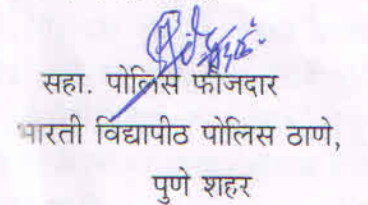 सहा. पोलिस फौजदार
भारती विद्यापीठ पोलिस ठाणे,
पुणे शहर